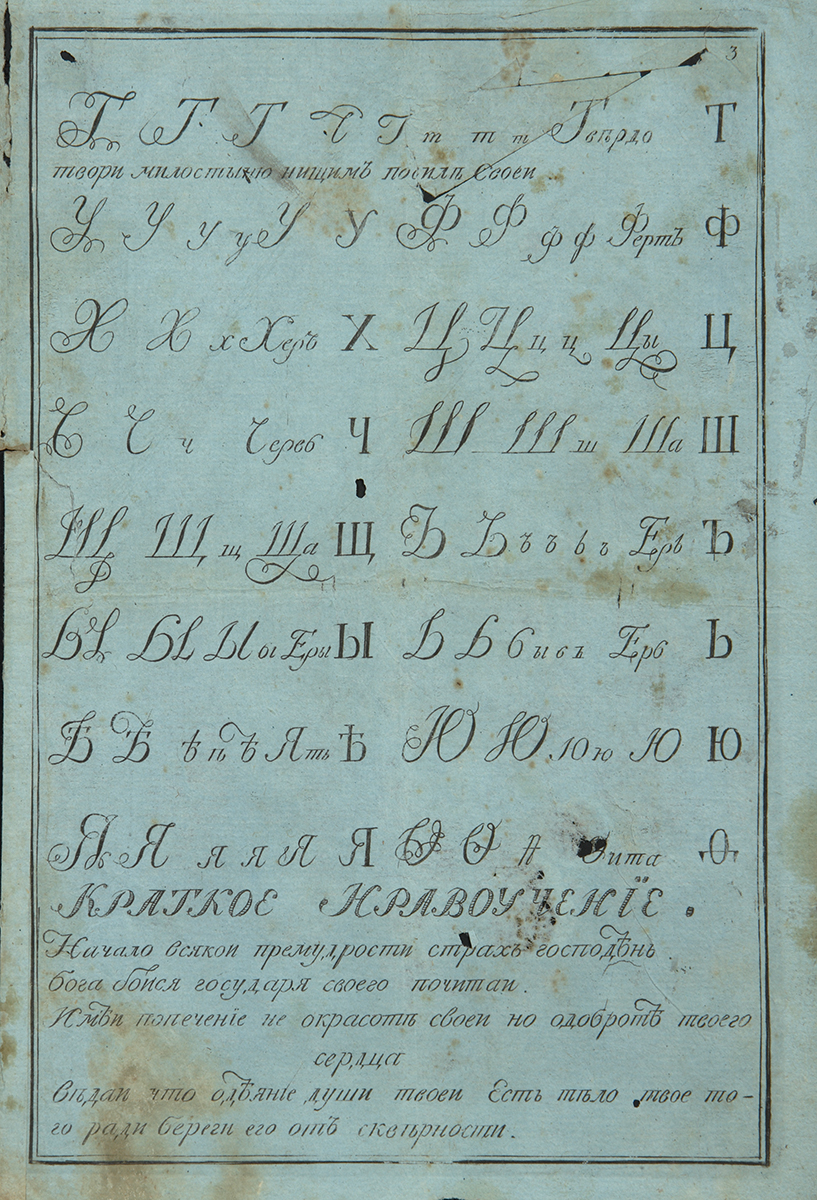 3
Т Т Т Т Т т т т Твѣрдо Т
твори милостыню нищимъ посилѣ своеи
У У у у У У Ф Ф ф ф Фертъ Ф
Х Х х Херъ Х Ц Ц ц ц Цы Ц
Ч Ч ч Червь Ч Ш Ш ш Ша Ш
Щ Щ щ Ща Щ Ъ Ъ ъ ъ ь ъ Еръ Ъ
Ы Ы Ы ы Еры Ы Ь Ь ь ы ь ъ Ерь Ь
Ѣ Ѣ ѣ ѣ ѣ Ять Ѣ Ю Ю Ю ю Ю Ю
Я Я я я Я Я Ѳ Ѳ Ѳита Ѳ
КРАТКОЕ НРАВОУЧЕНІЕ.
Начало всякои премудрости страхъ господѣнь.
бога боися государя своего почитаи.
Имѣи попеченіе не окрасотѣ своеи но одобротѣ твоего
сердца
вѣдаи что одѣяніе души твоеи Есть тѣло твое то-
го ради береги его отъ сквѣрности.